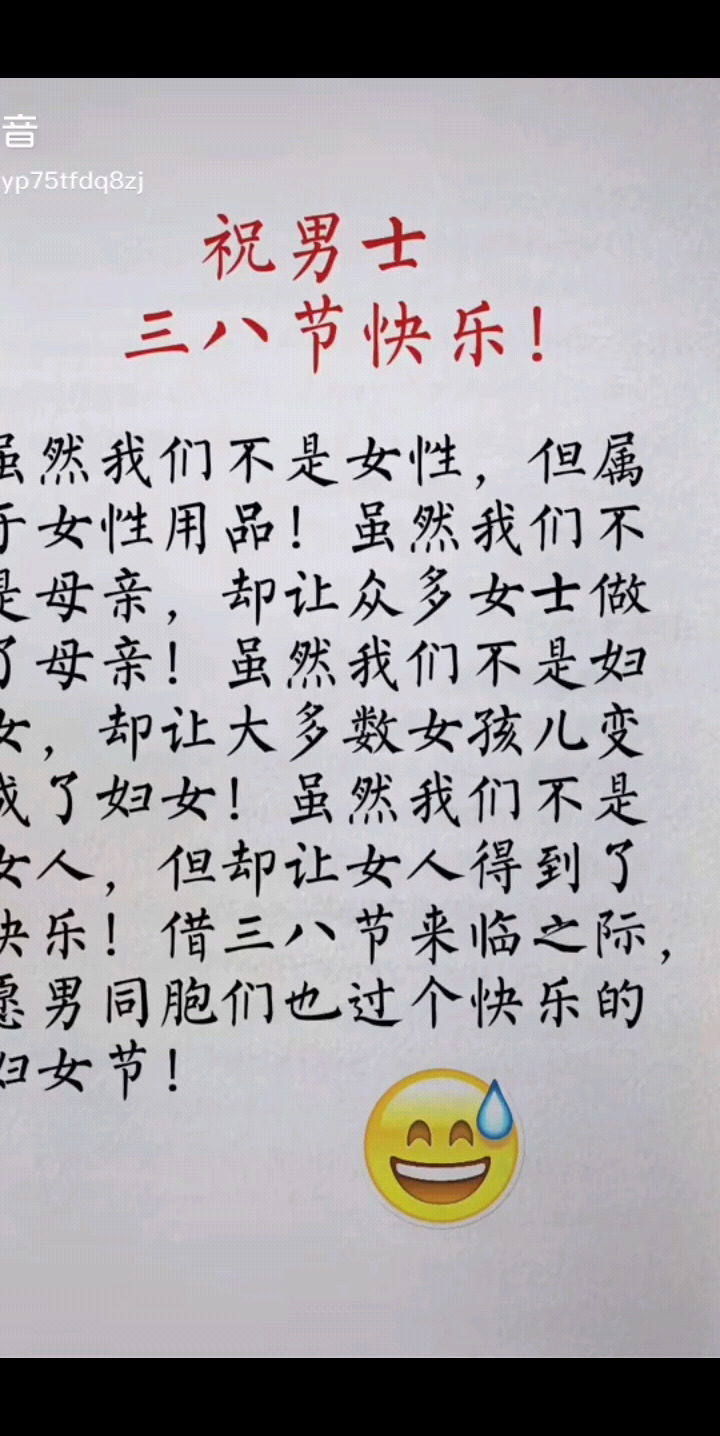 音
yp75tfdq8zj
祝男士
三八节快乐！
虽然我们不是女性，但属
于女性用品！虽然我们不
是母亲，却让众多女士做
了母亲！虽然我们不是妇
女，却让大多数女孩儿变
成了妇女！虽然我们不是
女人，但却让女人得到了
快乐！借三八节来临之际，
愿男同胞们也过个快乐的
妇女节！